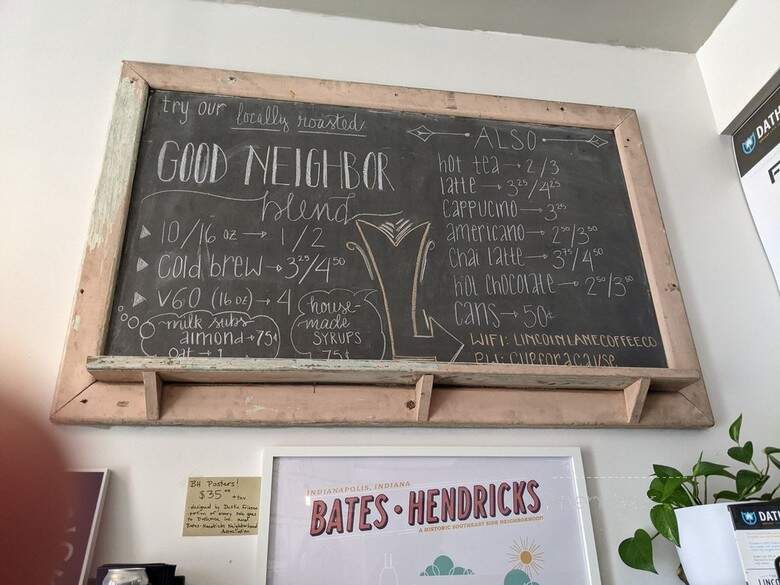 try our locally roasted
GOOD NEIGHBOR
blend
10/16 oz → 1/2
cold brew → 3²⁵/4⁵⁰
V60 (16 oz) → 4
milk subs
almond → 75¢
oat → 1
house-
made
SYRUPS
75¢
ALSO
hot tea → 2/3
latte → 3²⁵/4²⁵
CAPPUCINO → 3²⁵
americano → 2⁵⁰/3⁵⁰
chai latte → 3⁷⁵/4⁵⁰
hot chocolate → 2⁵⁰/3⁵⁰
cans → 50¢
WIFI: LINCOLNLANECOFFEECO
PW: cupforacause
BH Posters!
$35⁰⁰ + tax
designed by
portion of every sale goes
to Dathouse, Inc. and
Bates-Hendricks Neighborhood
Association
INDIANAPOLIS, INDIANA
BATES • HENDRICKS
A HISTORIC SOUTHEAST SIDE NEIGHBORHOOD
DATH
DAT